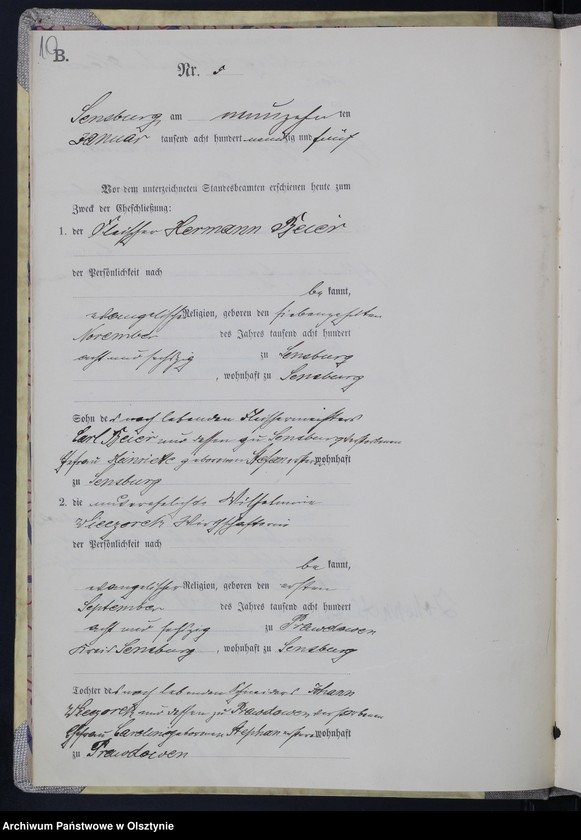 10
B.
Nr. 5
Sensburg am neunzehn ten
Januar tausend acht hundert neunzig und fünf
Vor dem unterzeichneten Standesbeamten erschienen heute zum
Zweck der Eheschließung:
1. der Fleischer Hermann Beier
der Persönlichkeit nach
be kannt,
evangelischer Religion, geboren den siebenzehnten
November des Jahres tausend acht hundert
acht und sechszig zu Sensburg
, wohnhaft zu Sensburg
Sohn des noch lebenden Fleischermeisters
Carl Beier und dessen zu Sensburg verstorbenen
Ehefrau geborenen wohnhaft
zu Sensburg
2. die unverehelichte Wilhelmine
Wieczorek Wirthschafterin
der Persönlichkeit nach
be kannt,
evangelischer Religion, geboren den ersten
September des Jahres tausend acht hundert
acht und sechszig zu Prawdowen
Kreis Sensburg , wohnhaft zu Sensburg
Tochter des noch lebenden Schneiders Johann
Wieczorek und dessen zu Prawdowen verstorbenen
Ehefrau Caroline geborenen Stephan wohnhaft
zu Prawdowen
Archiwum Państwowe w Olsztynie